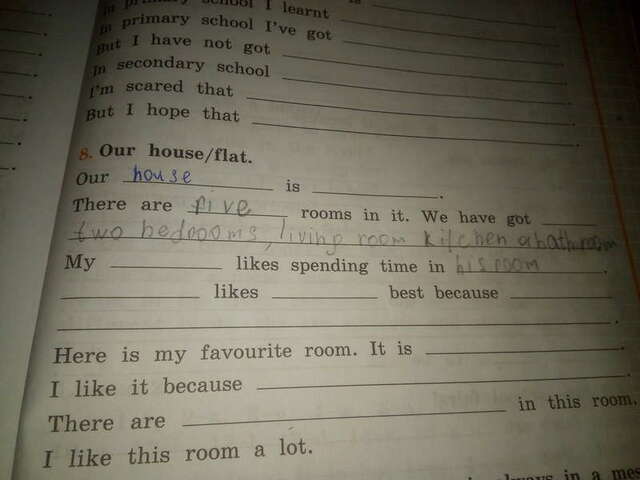 In primary school I learnt
In primary school I've got
But I have not got
In secondary school
I'm scared that
But I hope that
8. Our house/flat.
Our house is .
There are five rooms in it. We have got
two bedooms, living room kitchen bathroom
My likes spending time in his room .
likes best because
.
Here is my favourite room. It is .
I like it because .
There are in this room.
I like this room a lot.
always in a mes